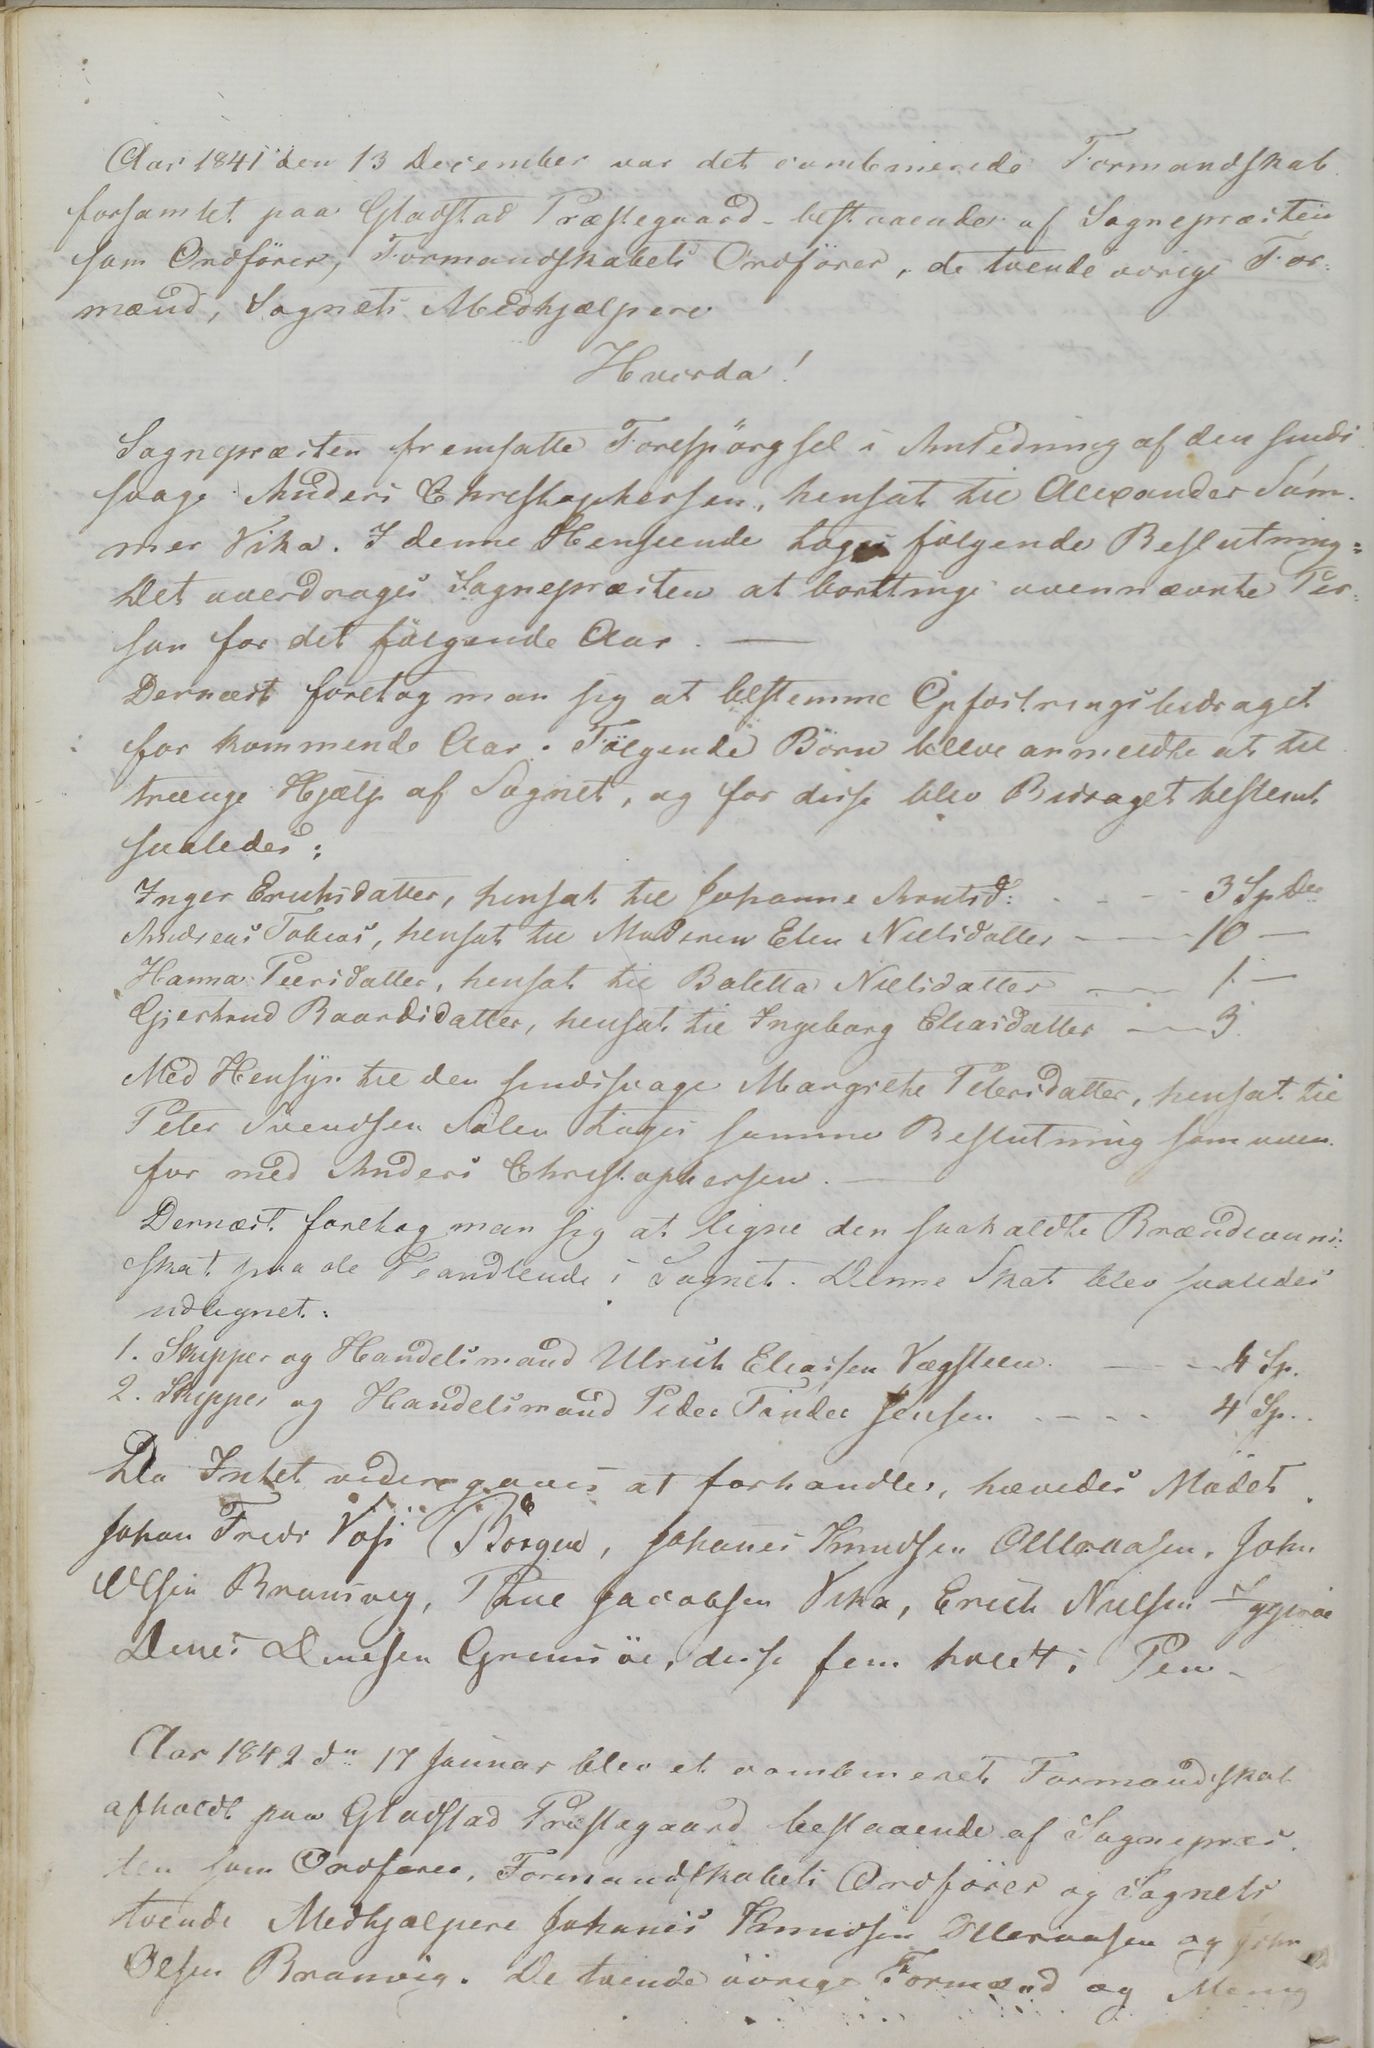 Aar 1841 den 13 December var det combinerede Formandskab
forsamlet paa Gladstad Præstegaard - bestaaende af Sognepræsten
som Ordförer, Formandskabets Ordförer, de tvende övrige For-
mænd, Sognets Medhjælpere
Hvorda!
Sognepræsten fremsatte Forespörgsel i Anledning af den sinds
svage Anders Christophersen, hensat til Alexander Sam-
mer Vika. I denne Henseende toges fölgende Beslutning:
Det overdroges Sognepræsten at borttinge ovennævnte Per-
son for det fölgende Aar. —
Dernæst foretog man sig at bestemme Opfostringsbidraget
for kommende Aar. Fölgende Börn bleve anmeldte at til
trænge Hjælp af Sognet, og for disse blev Bidraget bestemt
saaledes:
Inger Erichsdatter, hensat til Johanna Arntsd: - - - 3 Sp Dlr
Andreas Tobias, hensat til Moderen Elen Nielsdatter — 10 —
Hanna Peersdatter, hensat til Baletta Nielsdatter — 1 —
Gjertrud Baardsdatter, hensat til Ingeborg Eliasdatter — 3.
Med Hensyn til den sindssvage Margrethe Petersdatter, hensat til
Peter Svendsen Sålen toges samme Beslutning som oven-
for med Anders Christophersen. —
Dernæst foretog man sig at ligne den saakaldte Brændeviins-
skat paa de Handlende i Sognet. Denne Skat blev saaledes
udlignet:
1. Skipper og Handelsmand Ulrich Eliassen Vægsteen. — 4 Sp.
2. Skipper og Handelsmand Peder Jensen - - - - 4 Sp..
Da Intet videre gaves at forhandles, hævedes Mödet.
Johan Fredr Voss Börgen, Johanes Knudsen Olleraasen, John
Olsen Bransvig, Paul Jacobsen Vika, Erich Nielsen
Danesen Grimsöe, disse fem holdt i Pen -
Aar 1842 dn 17 Januar blev et combineret Formandskab
afholdt paa Gladstad Præstegaard bestaaende af Sognepræs-
ten som Ordförer, Formandskabets Ordförer og Sognets
tvende Medhjælpere Johanes Knudsen Olleraasen og John
Olsen Branvig. De tvende övrige Formænd og Menig